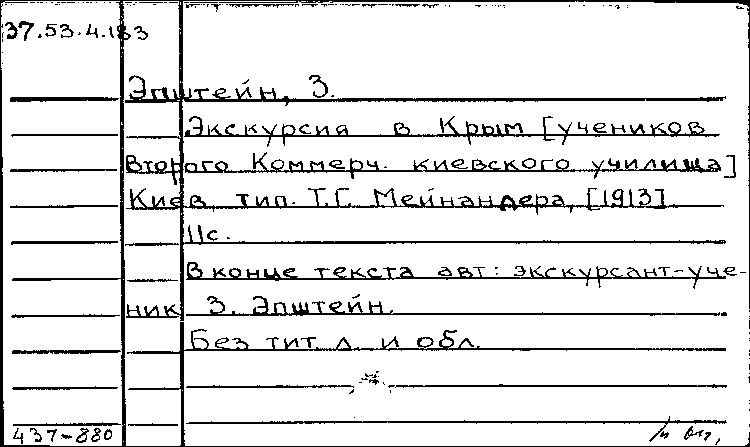 37.53.4.183
Эпштейн, З.
Экскурсия в Крым [учеников
Второго Коммерч. киевского училища]
Киев, тип. Т.Г. Мейнандера, [1913].
11с.
В конце текста авт: экскурсант-уче-
ник З. Эпштейн.
Без тит. л. и обл.
437-880